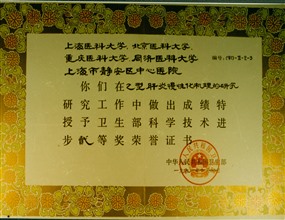 上海医科大学、北京医科大学、
重庆医科大学、同济医科大学
上海市静安区中心医院
你们在乙型肝炎慢性化机理的研究
研究工作中做出成绩特
授予卫生部科学技术进
步贰等奖荣誉证书
中华人民共和国卫生部